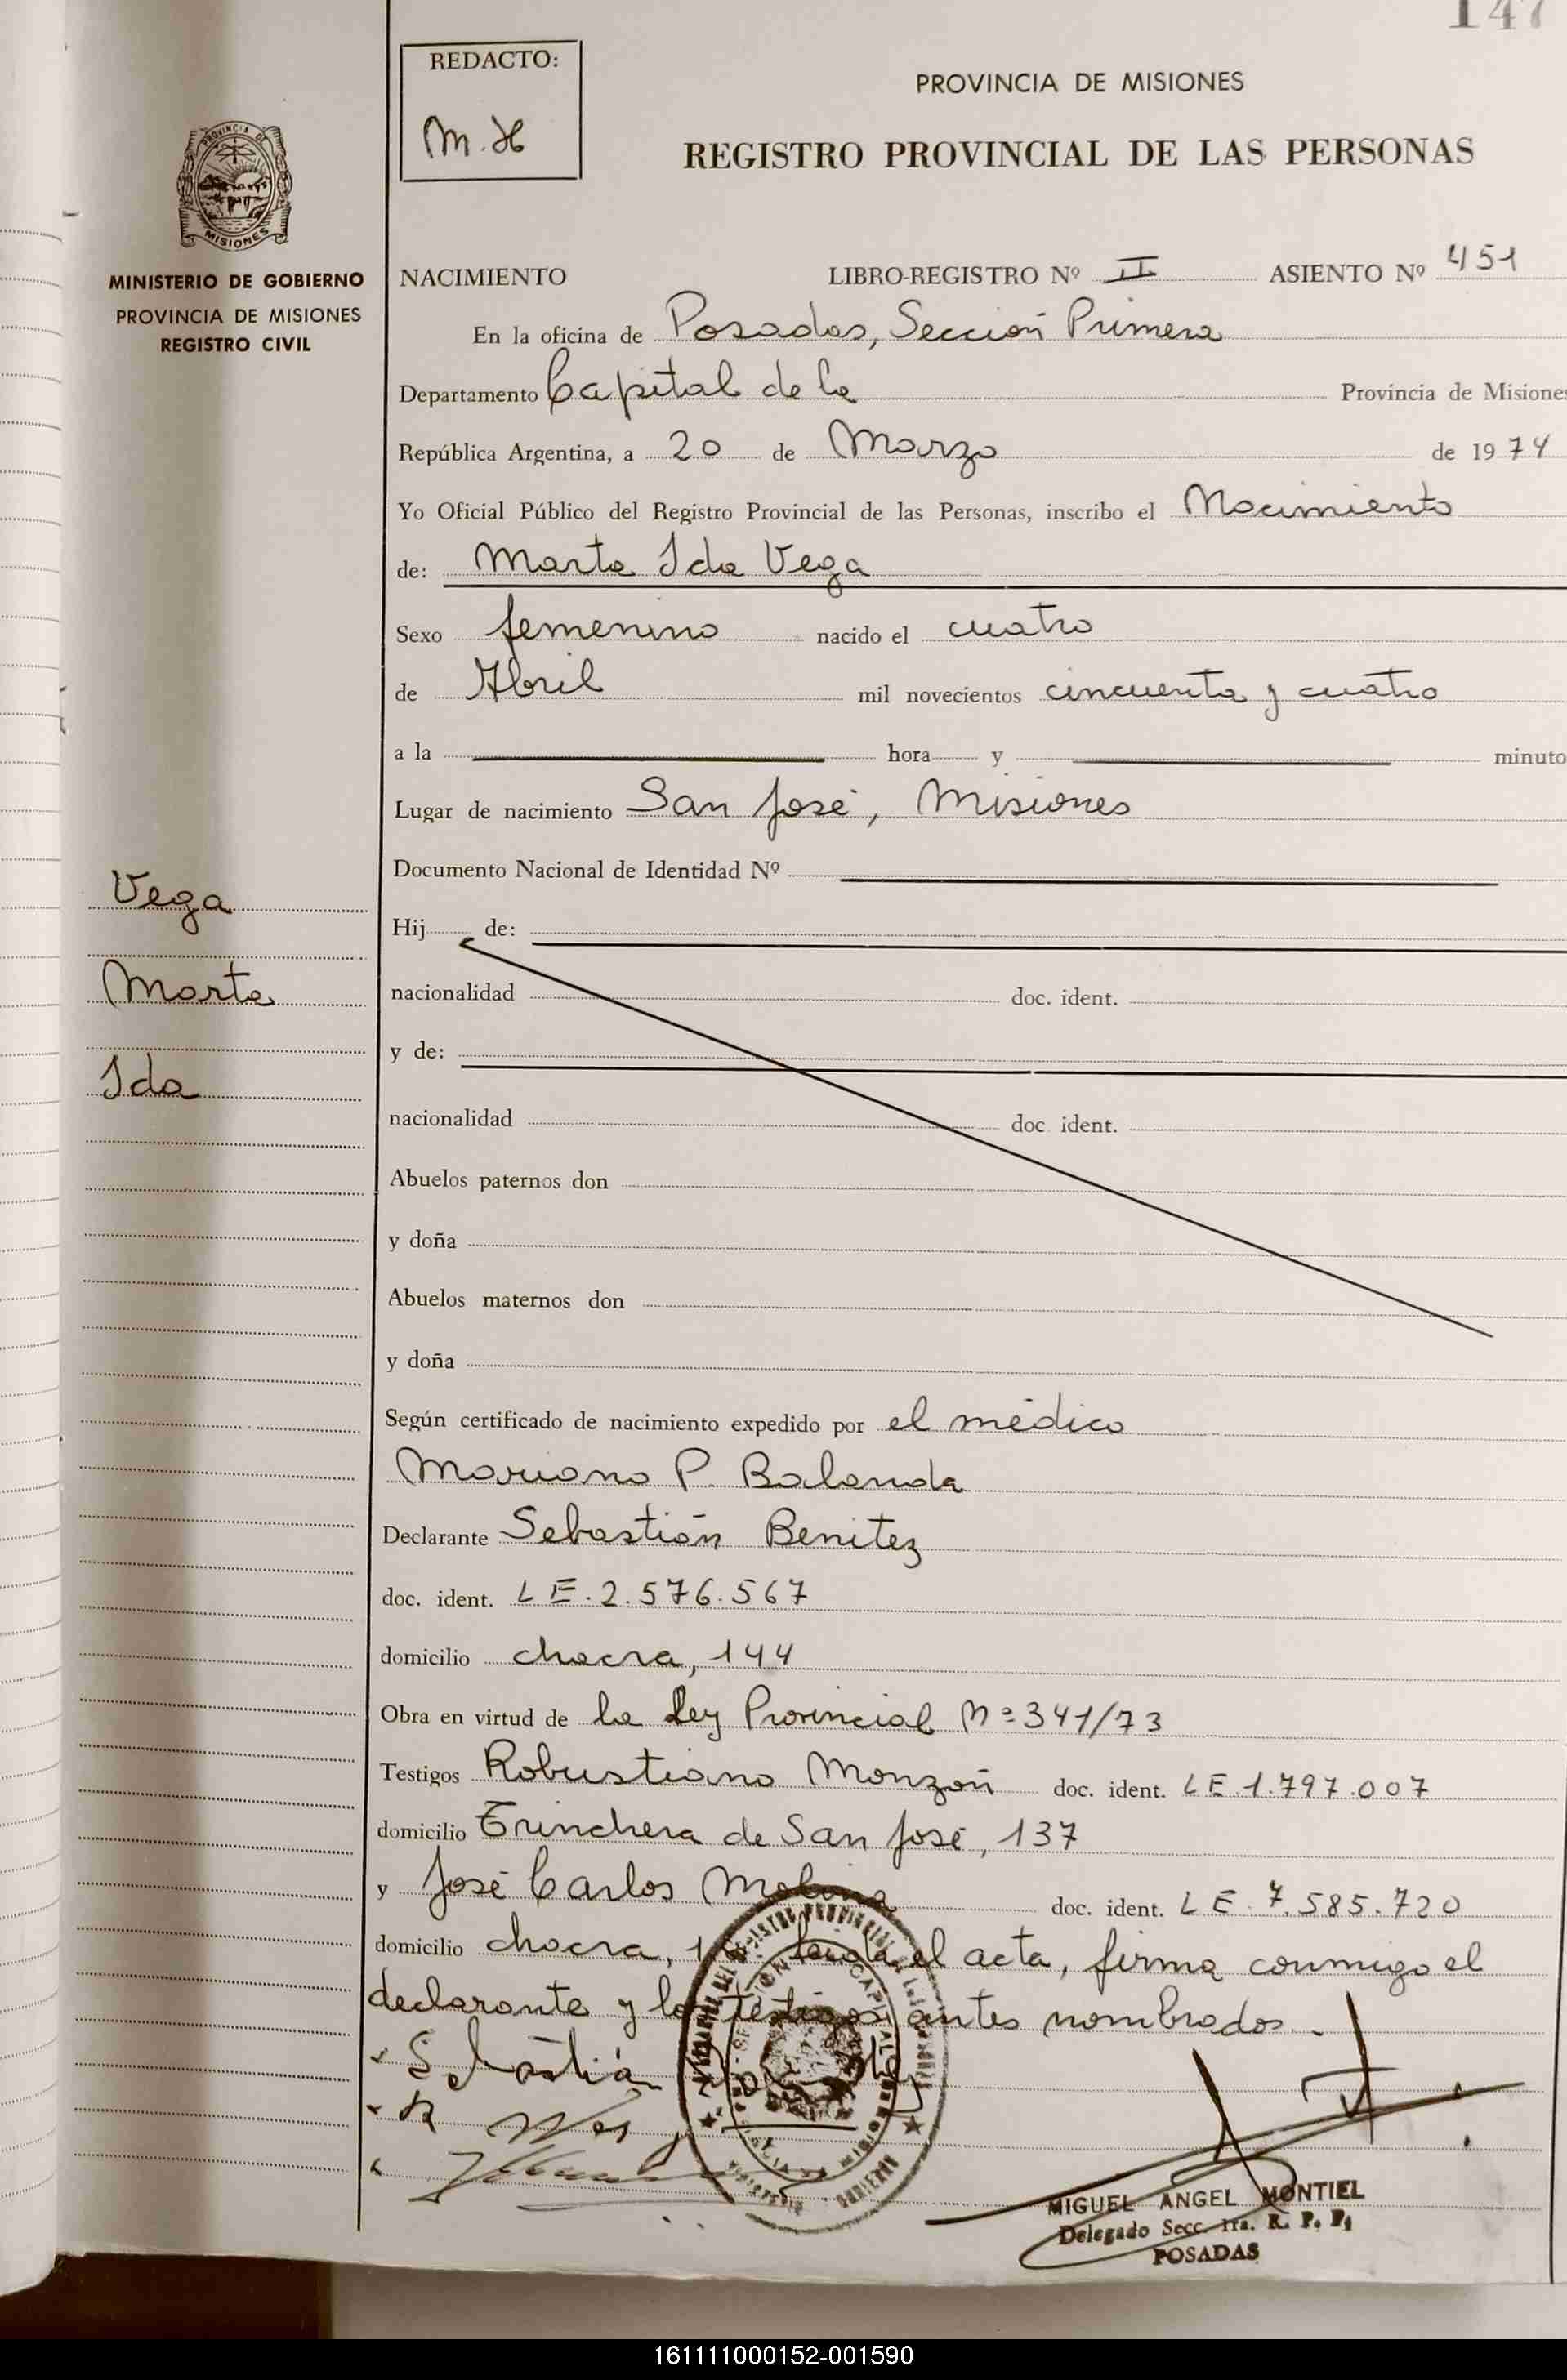 147
REDACTO:
M.H
PROVINCIA DE MISIONES
REGISTRO PROVINCIAL DE LAS PERSONAS
PROVINCIA DE
MISIONES
MINISTERIO DE GOBIERNO
PROVINCIA DE MISIONES
REGISTRO CIVIL
NACIMIENTO LIBRO-REGISTRO Nº II ASIENTO Nº 451
En la oficina de Posadas, Sección Primera
Departamento Capital de la Provincia de Misiones
República Argentina, a 20 de Marzo de 1974
Yo Oficial Público del Registro Provincial de las Personas, inscribo el Nacimiento
de: Marta Ida Vega
Sexo femenino nacido el cuatro
de Abril mil novecientos cincuenta y cuatro
a la hora y minuto
Lugar de nacimiento San José, Misiones
Documento Nacional de Identidad Nº
Vega
Marta
Ida
Hij de:
nacionalidad doc. ident.
y de:
nacionalidad doc ident.
Abuelos paternos don
y doña
Abuelos maternos don
y doña
Según certificado de nacimiento expedido por el médico
Mariano P. Balanda
Declarante Sebastián Benitez
doc. ident. LE.2.576.567
domicilio chacra, 144
Obra en virtud de la Ley Provincial Nº 341/73
Testigos Robustiano Monzón doc. ident. LE.1.797.007
domicilio Trinchera de San José, 137
y José Carlos Molina doc. ident. LE.7.585.720
domicilio chacra, el acta, firma conmigo el
declarante y los testigos antes nombrados.-
Sebastián
MIGUEL ANGEL MONTIEL
Delegado Secc. 1ra. R. P. P.
POSADAS
161111000152-001590